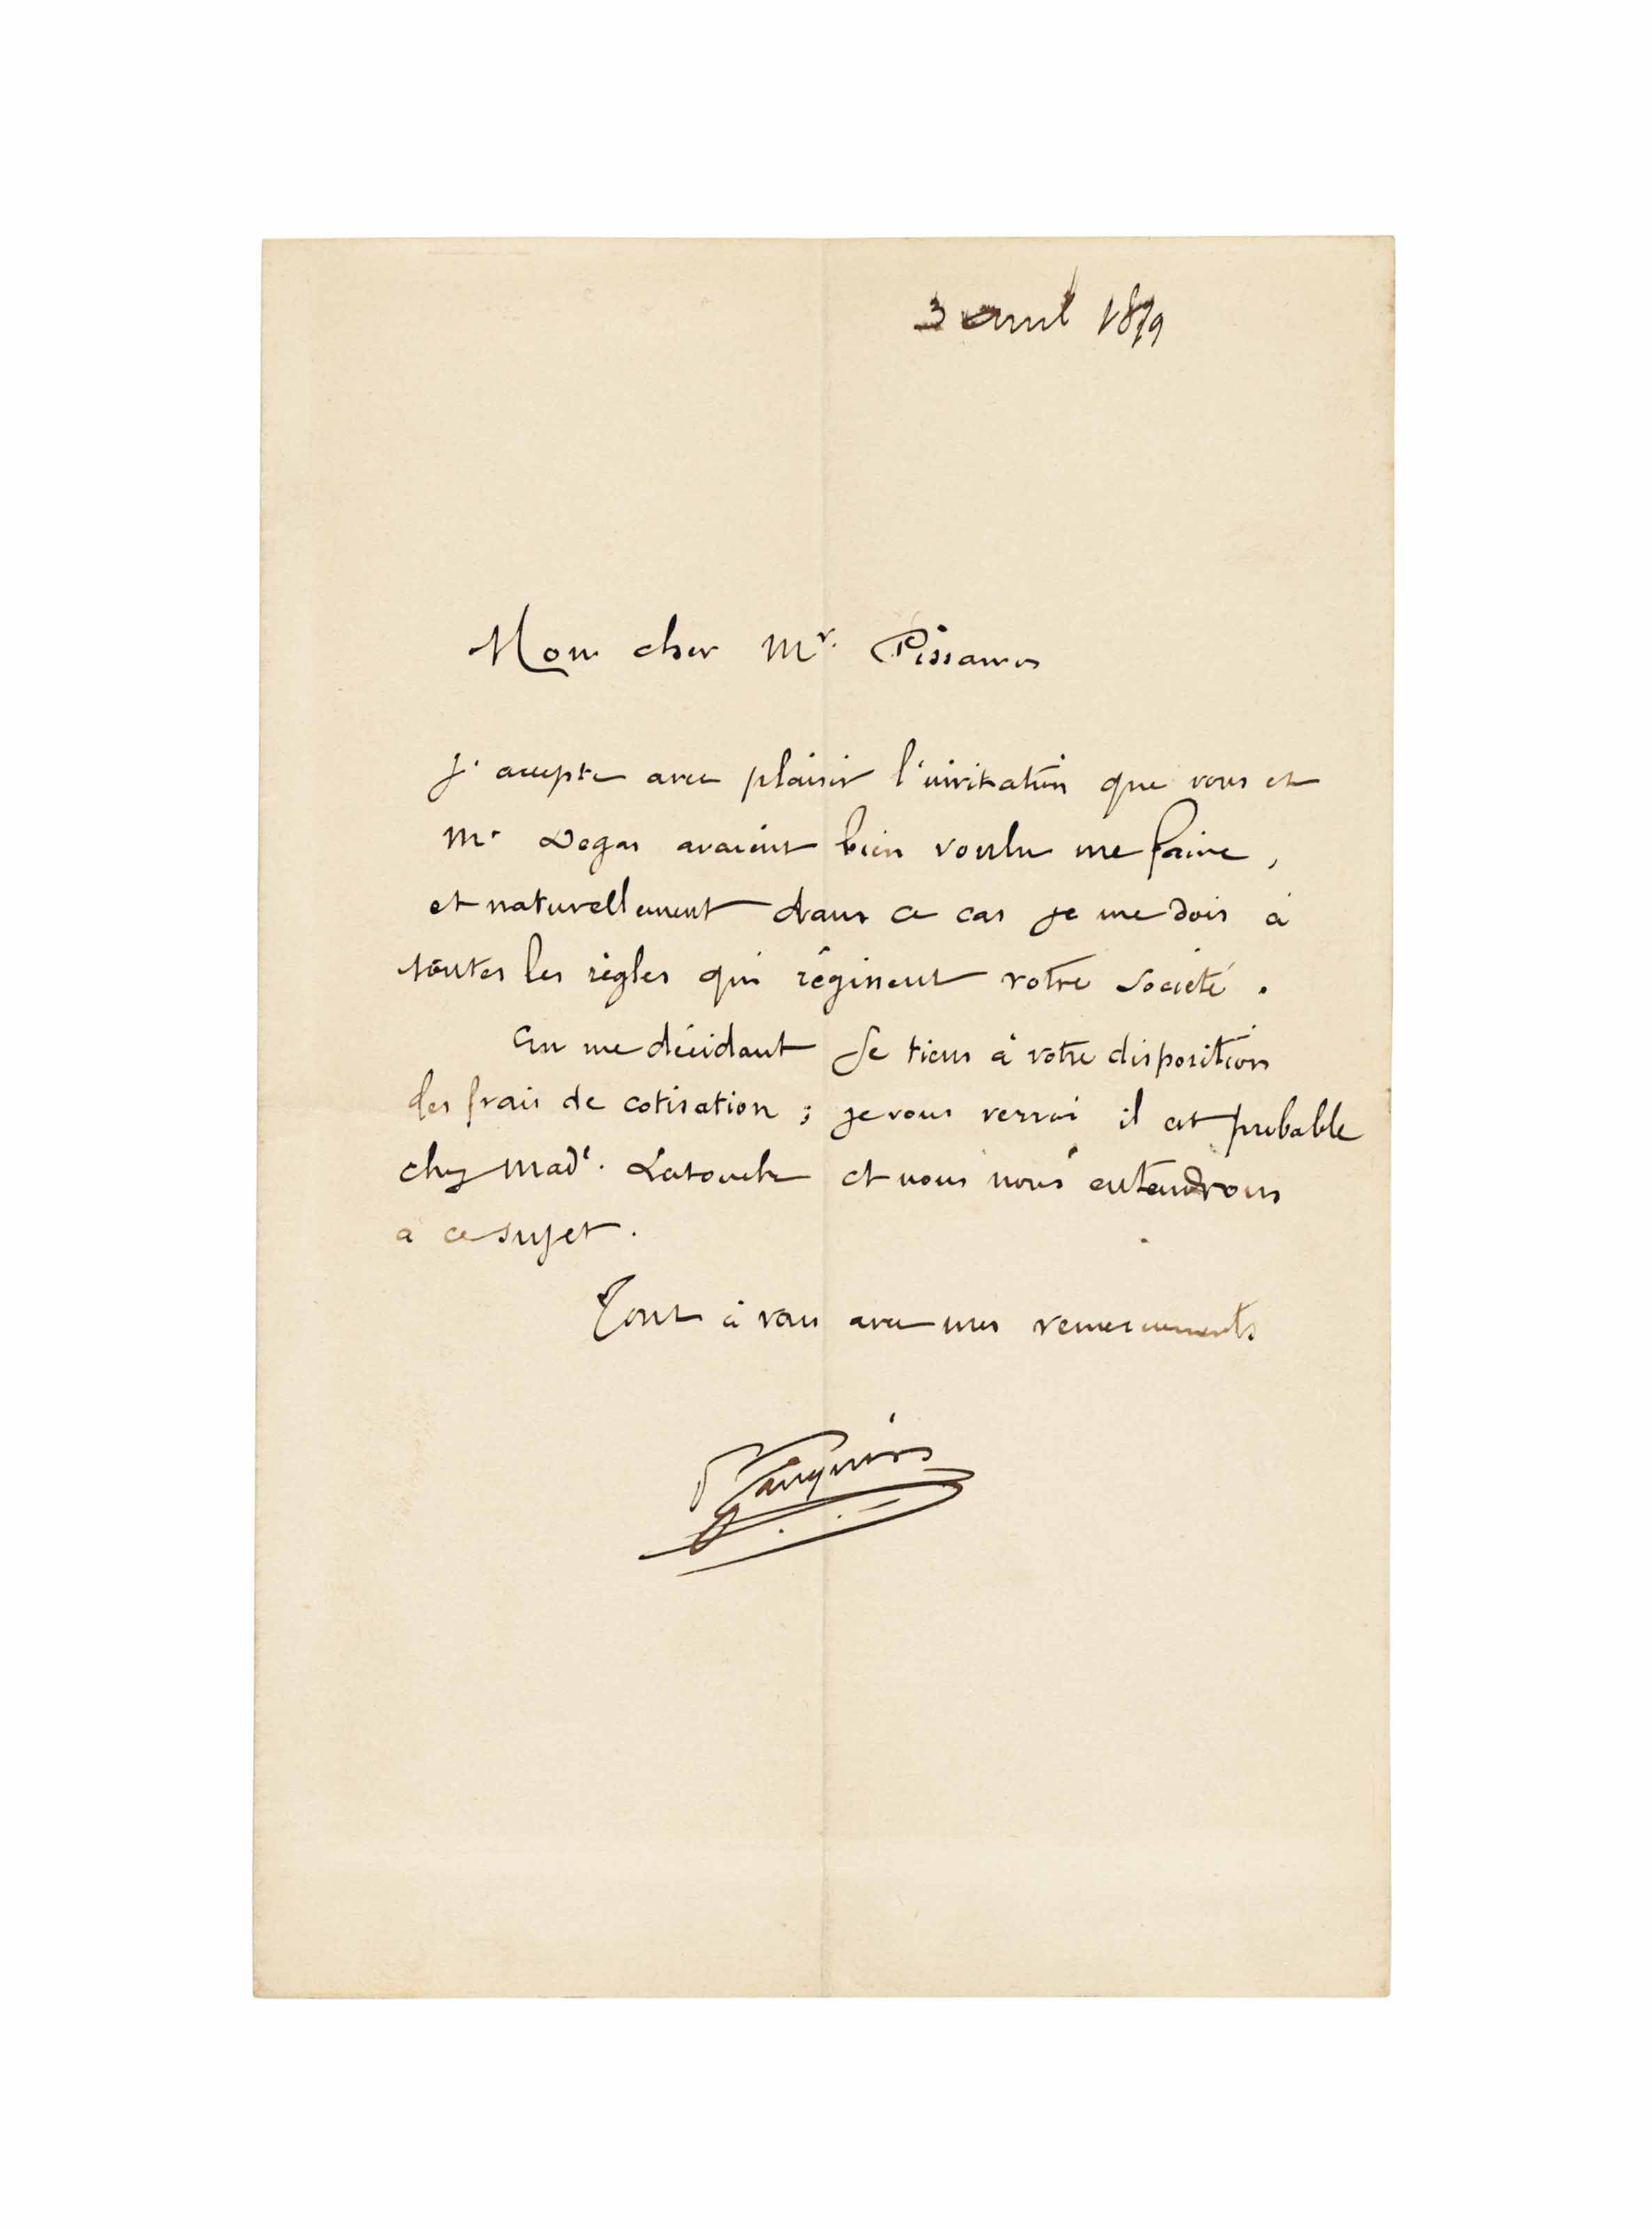 3 avril 1879
Mon cher Mr. Pissarro
J'accepte avec plaisir l'invitation que vous et
Mr Degas avaient bien voulu me faire,
et naturellement dans ce cas je me dois à
toutes les règles qui régissent votre Société.
En me décidant Je tiens à votre disposition
les frais de cotisation ; je vous verrai il est probable
chez Made. Latouche et nous nous entendrons
a ce sujet.
Tout à vous avec mes remerciements
P Gauguin